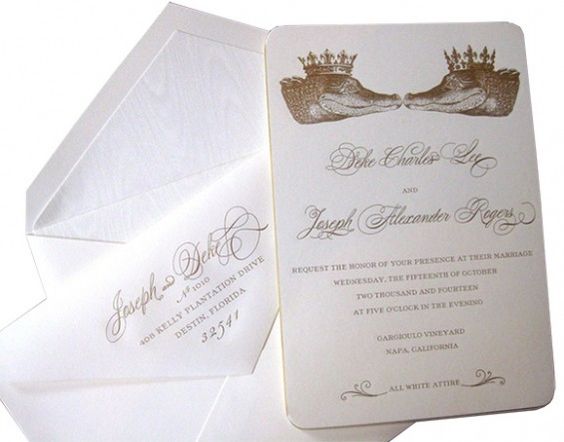 Deke Charles Lee
AND
Joseph Alexander Rogers
REQUEST THE HONOR OF YOUR PRESENCE AT THEIR MARRIAGE
WEDNESDAY, THE FIFTEENTH OF OCTOBER
TWO THOUSAND AND FOURTEEN
AT FIVE O'CLOCK IN THE EVENING
GARGIOULO VINEYARD
NAPA, CALIFORNIA
ALL WHITE ATTIRE
Joseph & Deke
No 1010
408 KELLY PLANTATION DRIVE
DESTIN, FLORIDA
32541